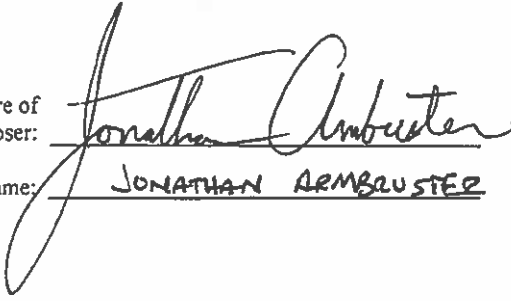 re of
oser: Jonathan Armbruster
ame: JONATHAN ARMBRUSTER